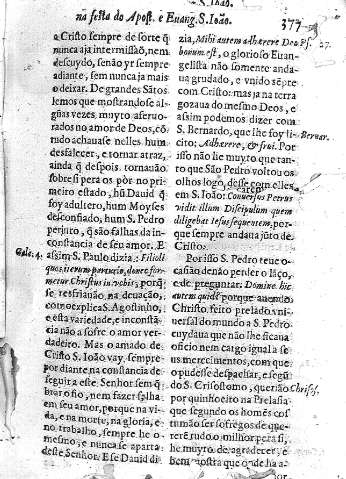 na festa do Apost. e Euang. S. Ioão. 377
a Cristo sempre de sorte q̃
nunca aja intermissaõ, nem
descuydo, senão yr sempre
adiante, sem nunca ja mais
o deixar. De grandes Sãtos
lemos que mostrandose al-
gũas vezes muyto aferuo-
rados no amor de Deos, cõ-
tudo achauase nelles hum
desfalecer, e tornar atraz,
ainda q̃ despois tornauão
sobre si pera os pòr no pri-
meiro estado, hũ Dauid q̃
foy adultero, hum Moyses
desconfiado, hum S. Pedro
perjuro, q̃ são falhas da in-
constancia de seu amor. E
Galat. 4. assim S. Paulo dizia: Filioli
quos iterum parturio, donec for-
metur Christus in vobis, porq̃
se resfriauão na deuação,
como explica S. Agostinho,
e esta variedade, e inconstã-
cia não a sofre o amor ver-
dadeiro. Mas o amado de
Cristo S. Ioão vay, sempre
por diante na constancia de
seguir a este Senhor sem q̃-
brar o fio, nem fazer falha
em seu amor, porque na vi-
da, e na morte, na gloria, e
no trabalho, sempre he o
mesmo, e nunca se aparta
deste Senhor. E se Dauid di-
zia, Mihi autem adhærere Deo Ps. 27.
bonum est, o glorioso Euan-
gelista não somente anda-
ua grudado, e vnido sẽpre
com Cristo: mas ja na terra
gozaua do mesmo Deos, e
assim podemos dizer com
S. Bernardo, que lhe foy li- Bernar.
cito; Adherere, & frui. Por
isso não he muyto que tan-
to que São Pedro voltou os
olhos logo, desse com elles
em S. Ioão: Conuersus Petrus
vidit illum Discipulum quem
diligebat Iesus sequentem, por-
que sempre andaua jũto de
Cristo.
Por isso S. Pedro teue o-
casião de não perder o laço,
e de preguntar: Domine hic
autem quid? porque auendo
Christo feito prelado vni-
uersal do mundo a S. Pedro
cuydaua que não lhe ficaua
oficio nem cargo igual a se-
us merecimentos, com que
o pudesse despachar, e segũ-
do S. Crisostomo, querião Chrisos.
por quinhoeito na Prelasia
que segundo os homẽs cos-
tumão ser sofregos de que-
rerẽ tudo o milhor pera si,
he muyto de agradecer, e
bem mostra que onde ha a-